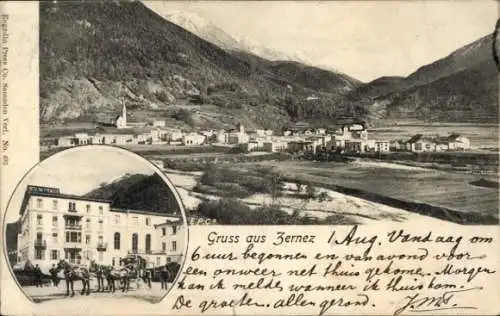 Engadin Press Co. Samaden Verl. No. 691
Gruss aus Zernez
1 Aug. Vandaag om
6 uur begonnen en van avond voor
een onweer net thuis gekome. Morgen
kan ik melden, wanneer ik thuis kom.
De groeten allen gerond.